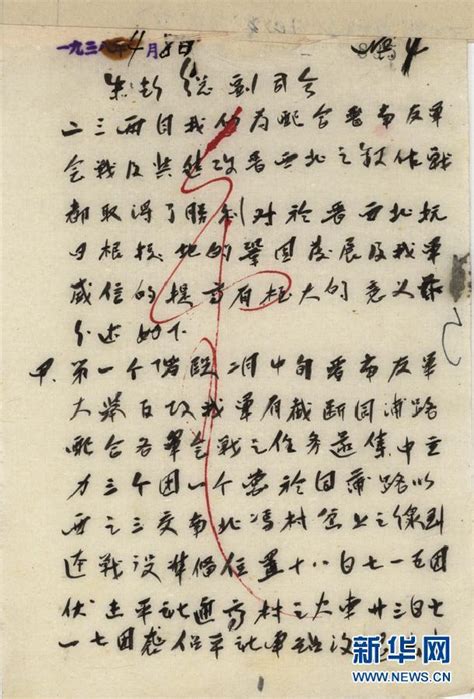 一九三八年4月8日
No 4
朱彭总副司令
二三两月我们为配合晋南友军
会战及其进攻晋西北之敌作战
都取得了胜利对于晋西北抗
日根据地的巩固发展及我军
威信的提高有极大的意义兹
分述如下
甲、第一个阶段二月中旬晋南友军
大举反攻我军有截断同浦路
配合各军会战之任务遂集中主
力三个团一个营于同蒲路以
西之三交南北冯村 上之线到
达战没准备位置十八日七一五团
伏击平社通高村之火车廿三日七
一七团 平社车站
新华网
WWW.NEWS.CN